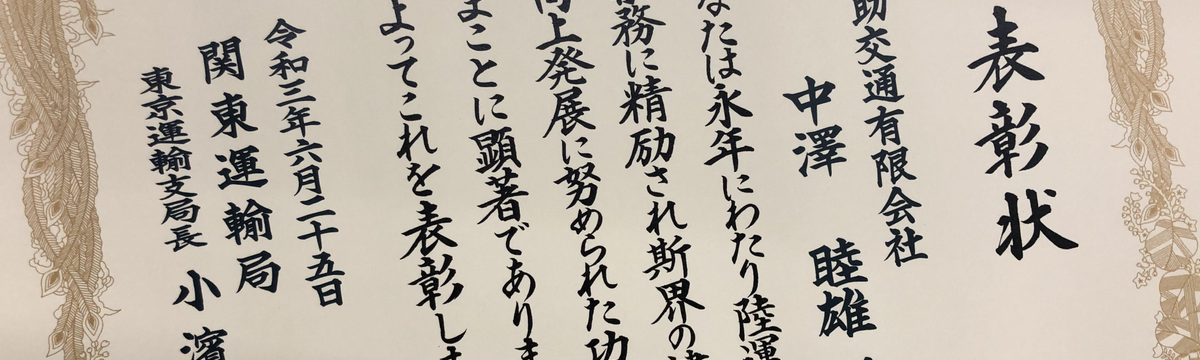 表彰状
助交通有限会社
中澤 睦雄
なたは永年にわたり陸運
務に精励され斯界の
向上発展に努められた功
まことに顕著でありま
よってこれを表彰しま
令和三年六月二十五日
関東運輸局
東京運輸支局長 小濱